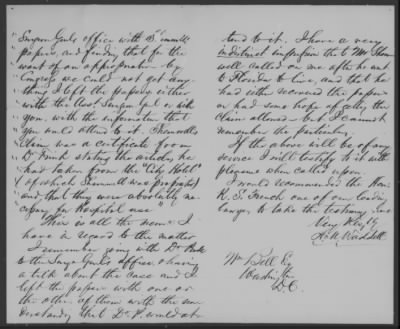 " Surgeon Genls office with B. Semmill's
" papers, and finding that for the
" want of an appropriation by
" Congress we could not get any-
" thing I left the papers either
" with the Asst. Surgeon Genl or with
" you, with the information that
" you would attend to it.
" Claim was a certificate from
" Dr stating the articles he
" had taken from the "City Hotel"
" (of which was proprietor)
" and that they were absolutely ne-
" cessary for hospital use "
This is all the memo I
have in regard to the matter
I remember going with Dr
to the Surgn Genls office & having
a talk about the case and I
left the papers with one or
the other of them with the un-
derstanding that Dr P. would at-
tend to it. I have a very
indistinct impression that Mr
well called on me after he went
to Florida to live, and that he
had either recovered the papers
or had some hope of getting the
claim allowed - but I cannot
remember the particulars.
If the above will be of any
service I will testify to it with
pleasure when called upon.
I would recommend the Hon.
R. S. French one of our leading
lawyers to take the testimony
Very Resply
Waddell
Wm Bell Esq
Washington
D.C.